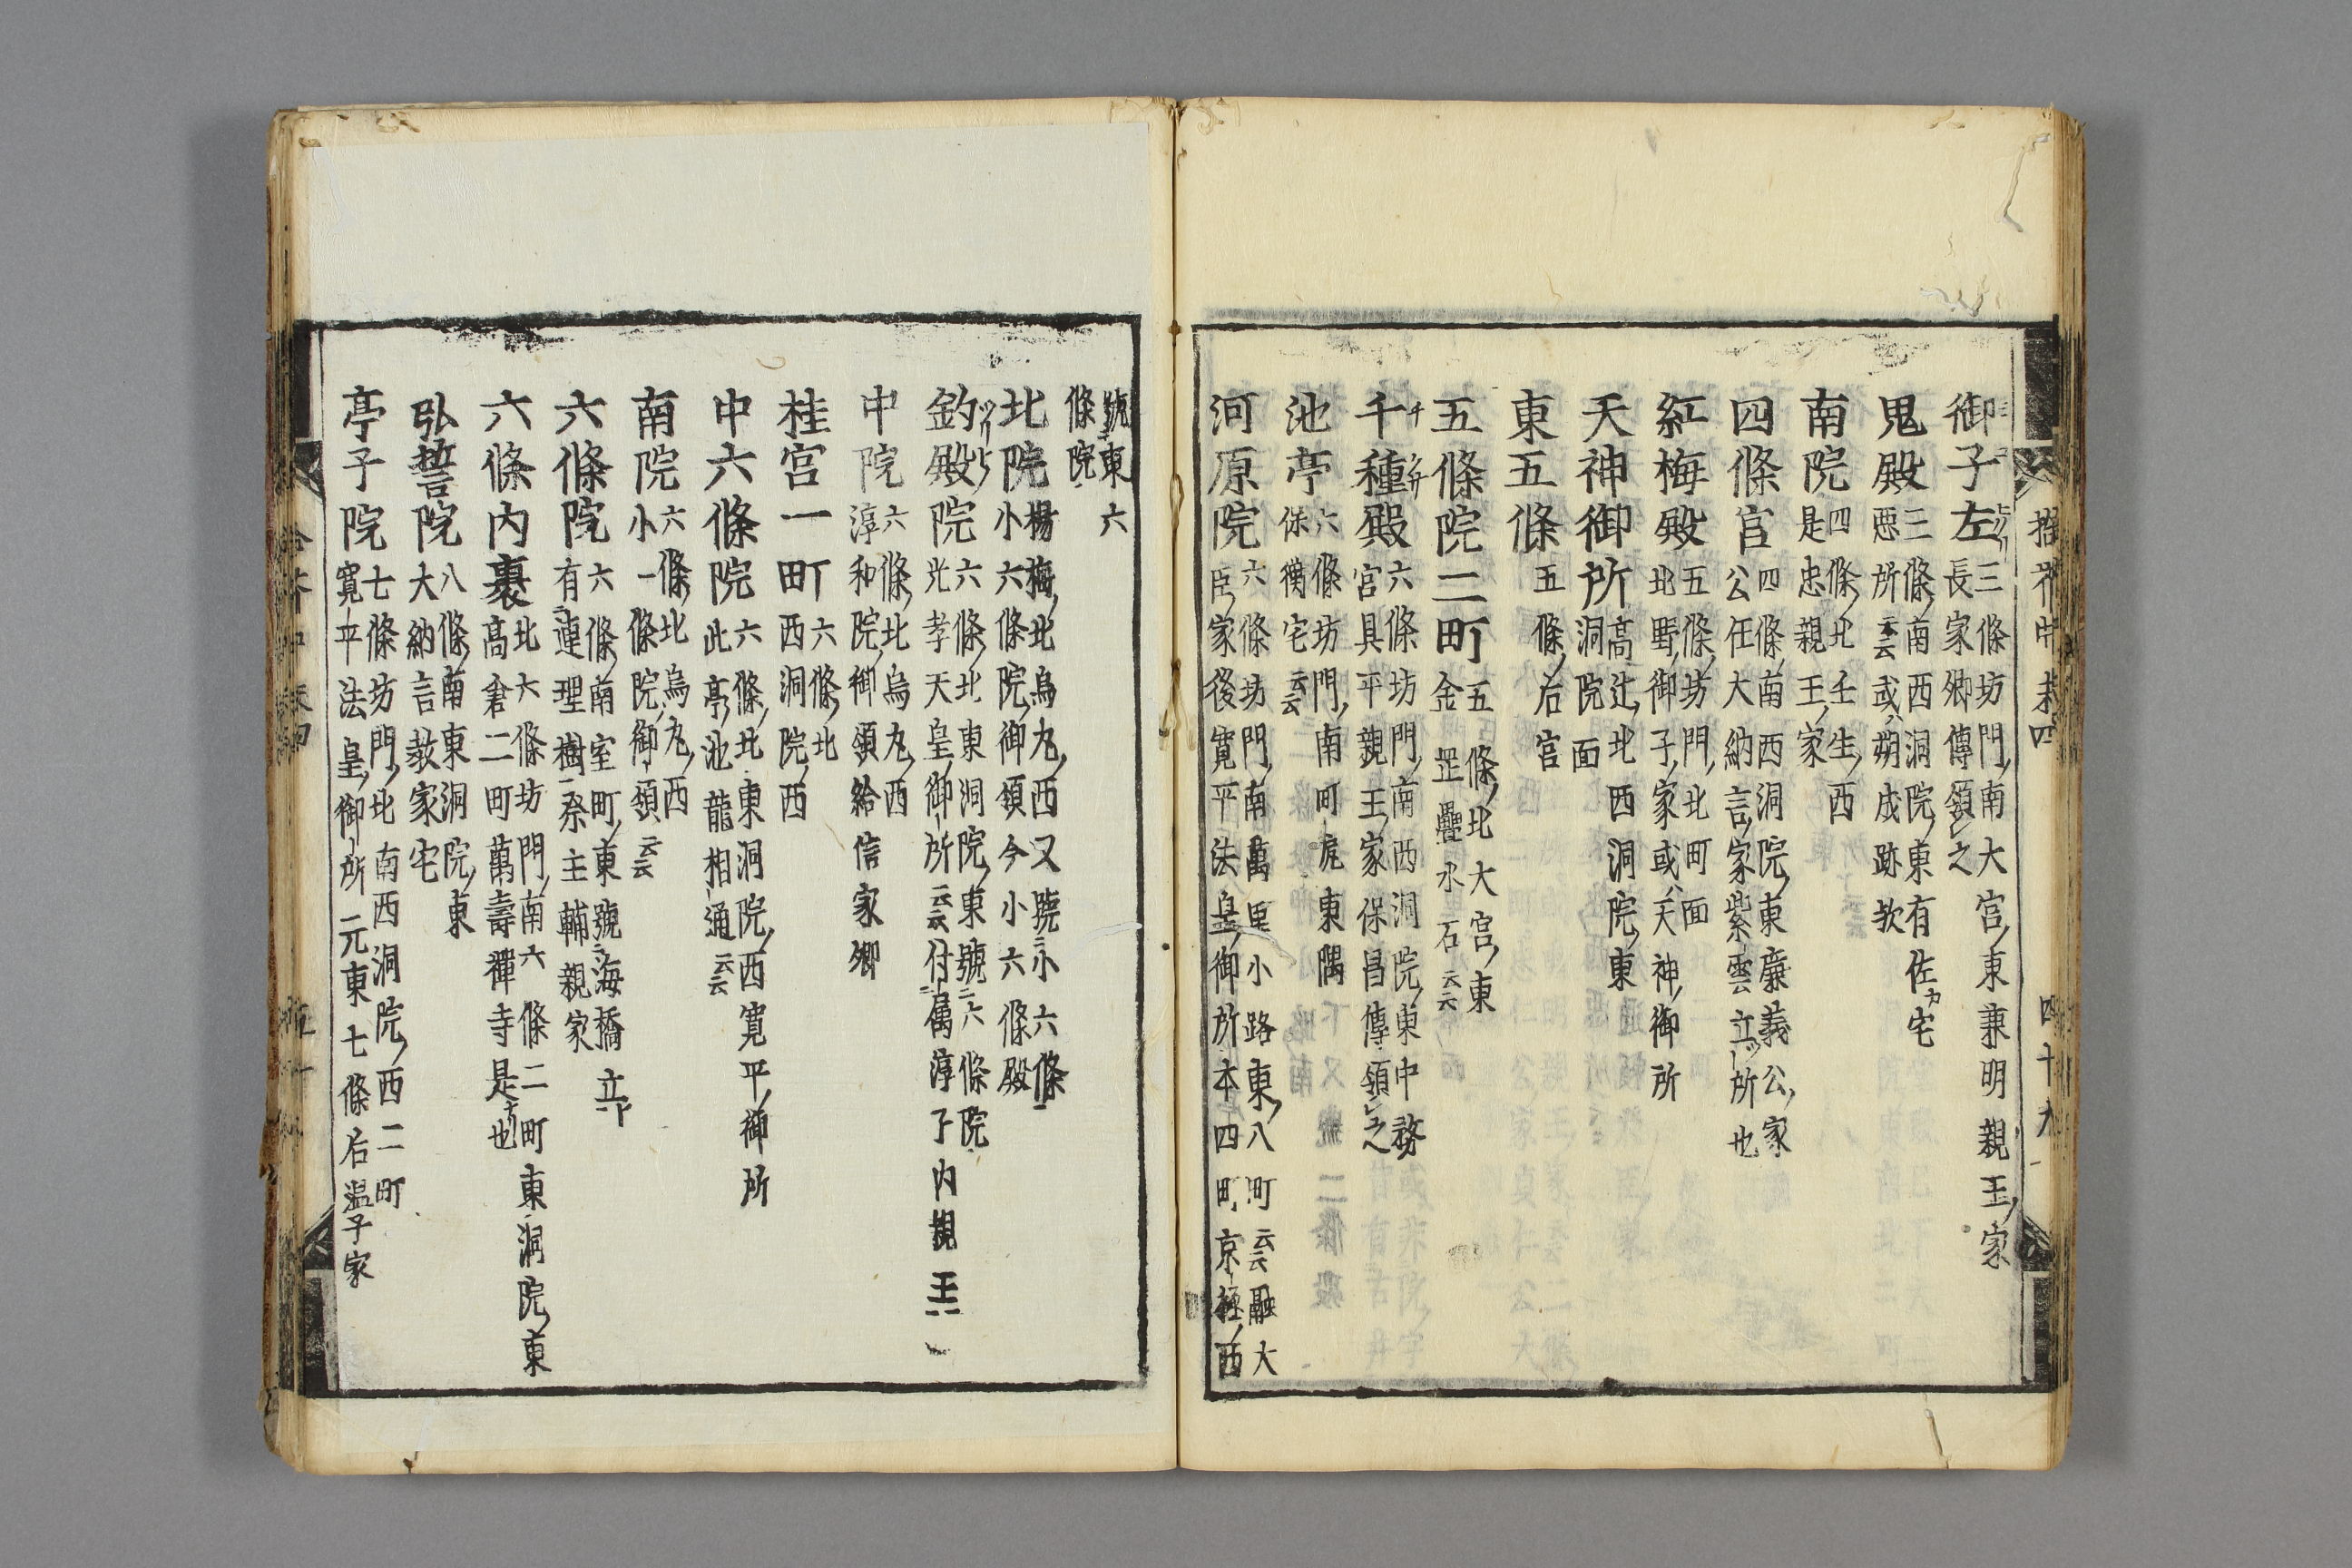 御子左 三條坊門南大宮東兼明親王家
長家卿傳領之
鬼殿 三條南西洞院東有佐宅
悪所云云或朔成跡欤
南院 四條北壬生西
是忠親王家
四條宮 四條南西洞院東廉義公家
公任大納言家紫雲立所也
紅梅殿 五條坊門北町面
北野御子家或天神御所
天神御所 高辻北西洞院東
洞院面
東五條 五條后宮
五條院二町 五條北大宮東
金罡疊水石云云
千種殿 六條坊門南西洞院東中務
宮具平親王家保昌傳領之
池亭 六條坊門南町尻東隅
保衡宅云云
河原院 六條坊門南萬里小路東八町云云融大
臣家後寛平法皇御所本四町京極西
拾芥中末四 四十九
號東六
條院
北院 楊梅北烏丸西又號小六條
小六條院御領今小六條殿
釣殿院 六條北東洞院東號六條院
光孝天皇御所云云付属淳子内親王
中院 六條北烏丸西
淳和院御領給信家卿
桂宮一町 六條北
西洞院西
中六條院 六條北東洞院西寛平御所
此亭池龍相通云云
南院 六條北烏丸西
小一條院御領云云
六條院 六條南室町東號海橋立
有連理樹祭主輔親家
六條内裏 北六條坊門南六條二町東洞院東
高倉二町萬壽禪寺是也
弘誓院 八條南東洞院東
大納言教家宅
亭子院 七條坊門北南西洞院西二町
寛平法皇御所元東七條后温子家